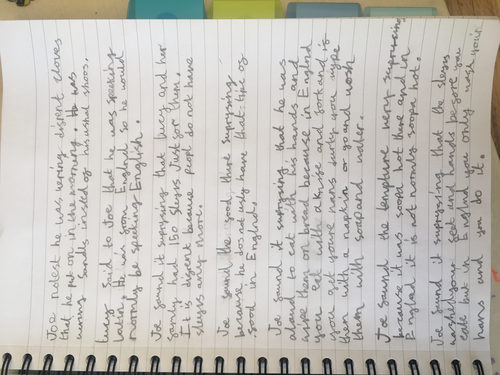 Joe notest he was wering disrent cloves
that he put on in the morning. He was
wering Sandls insted of his usual shoos.
Lucy said to Joe that he was speeking
latin. He was from England so he would
normly be speeking English.
Joe sound it suprising that lucy and her
samly had 150 slejs Just sor them.
It is disrent because people do not have
slejs any more.
Joe sound the sood there suprising
because he dos not usly have that type of
sood in England.
Joe sound it suprising that he was
alowd to eat with his hands and
wipe them on bread because in England
you eat with a knise and sork and is
you get youre hans durty you wipe
them with a napcin or go and wosh
them with soap and water.
Joe sound the tempture very suprising
because it was soooh hot there and in
England it is not normly soooh hot.
Joe sound it suprising that the slejs
washed your seet and hands besore you
eat but in England you only wash your
hans and you do it.